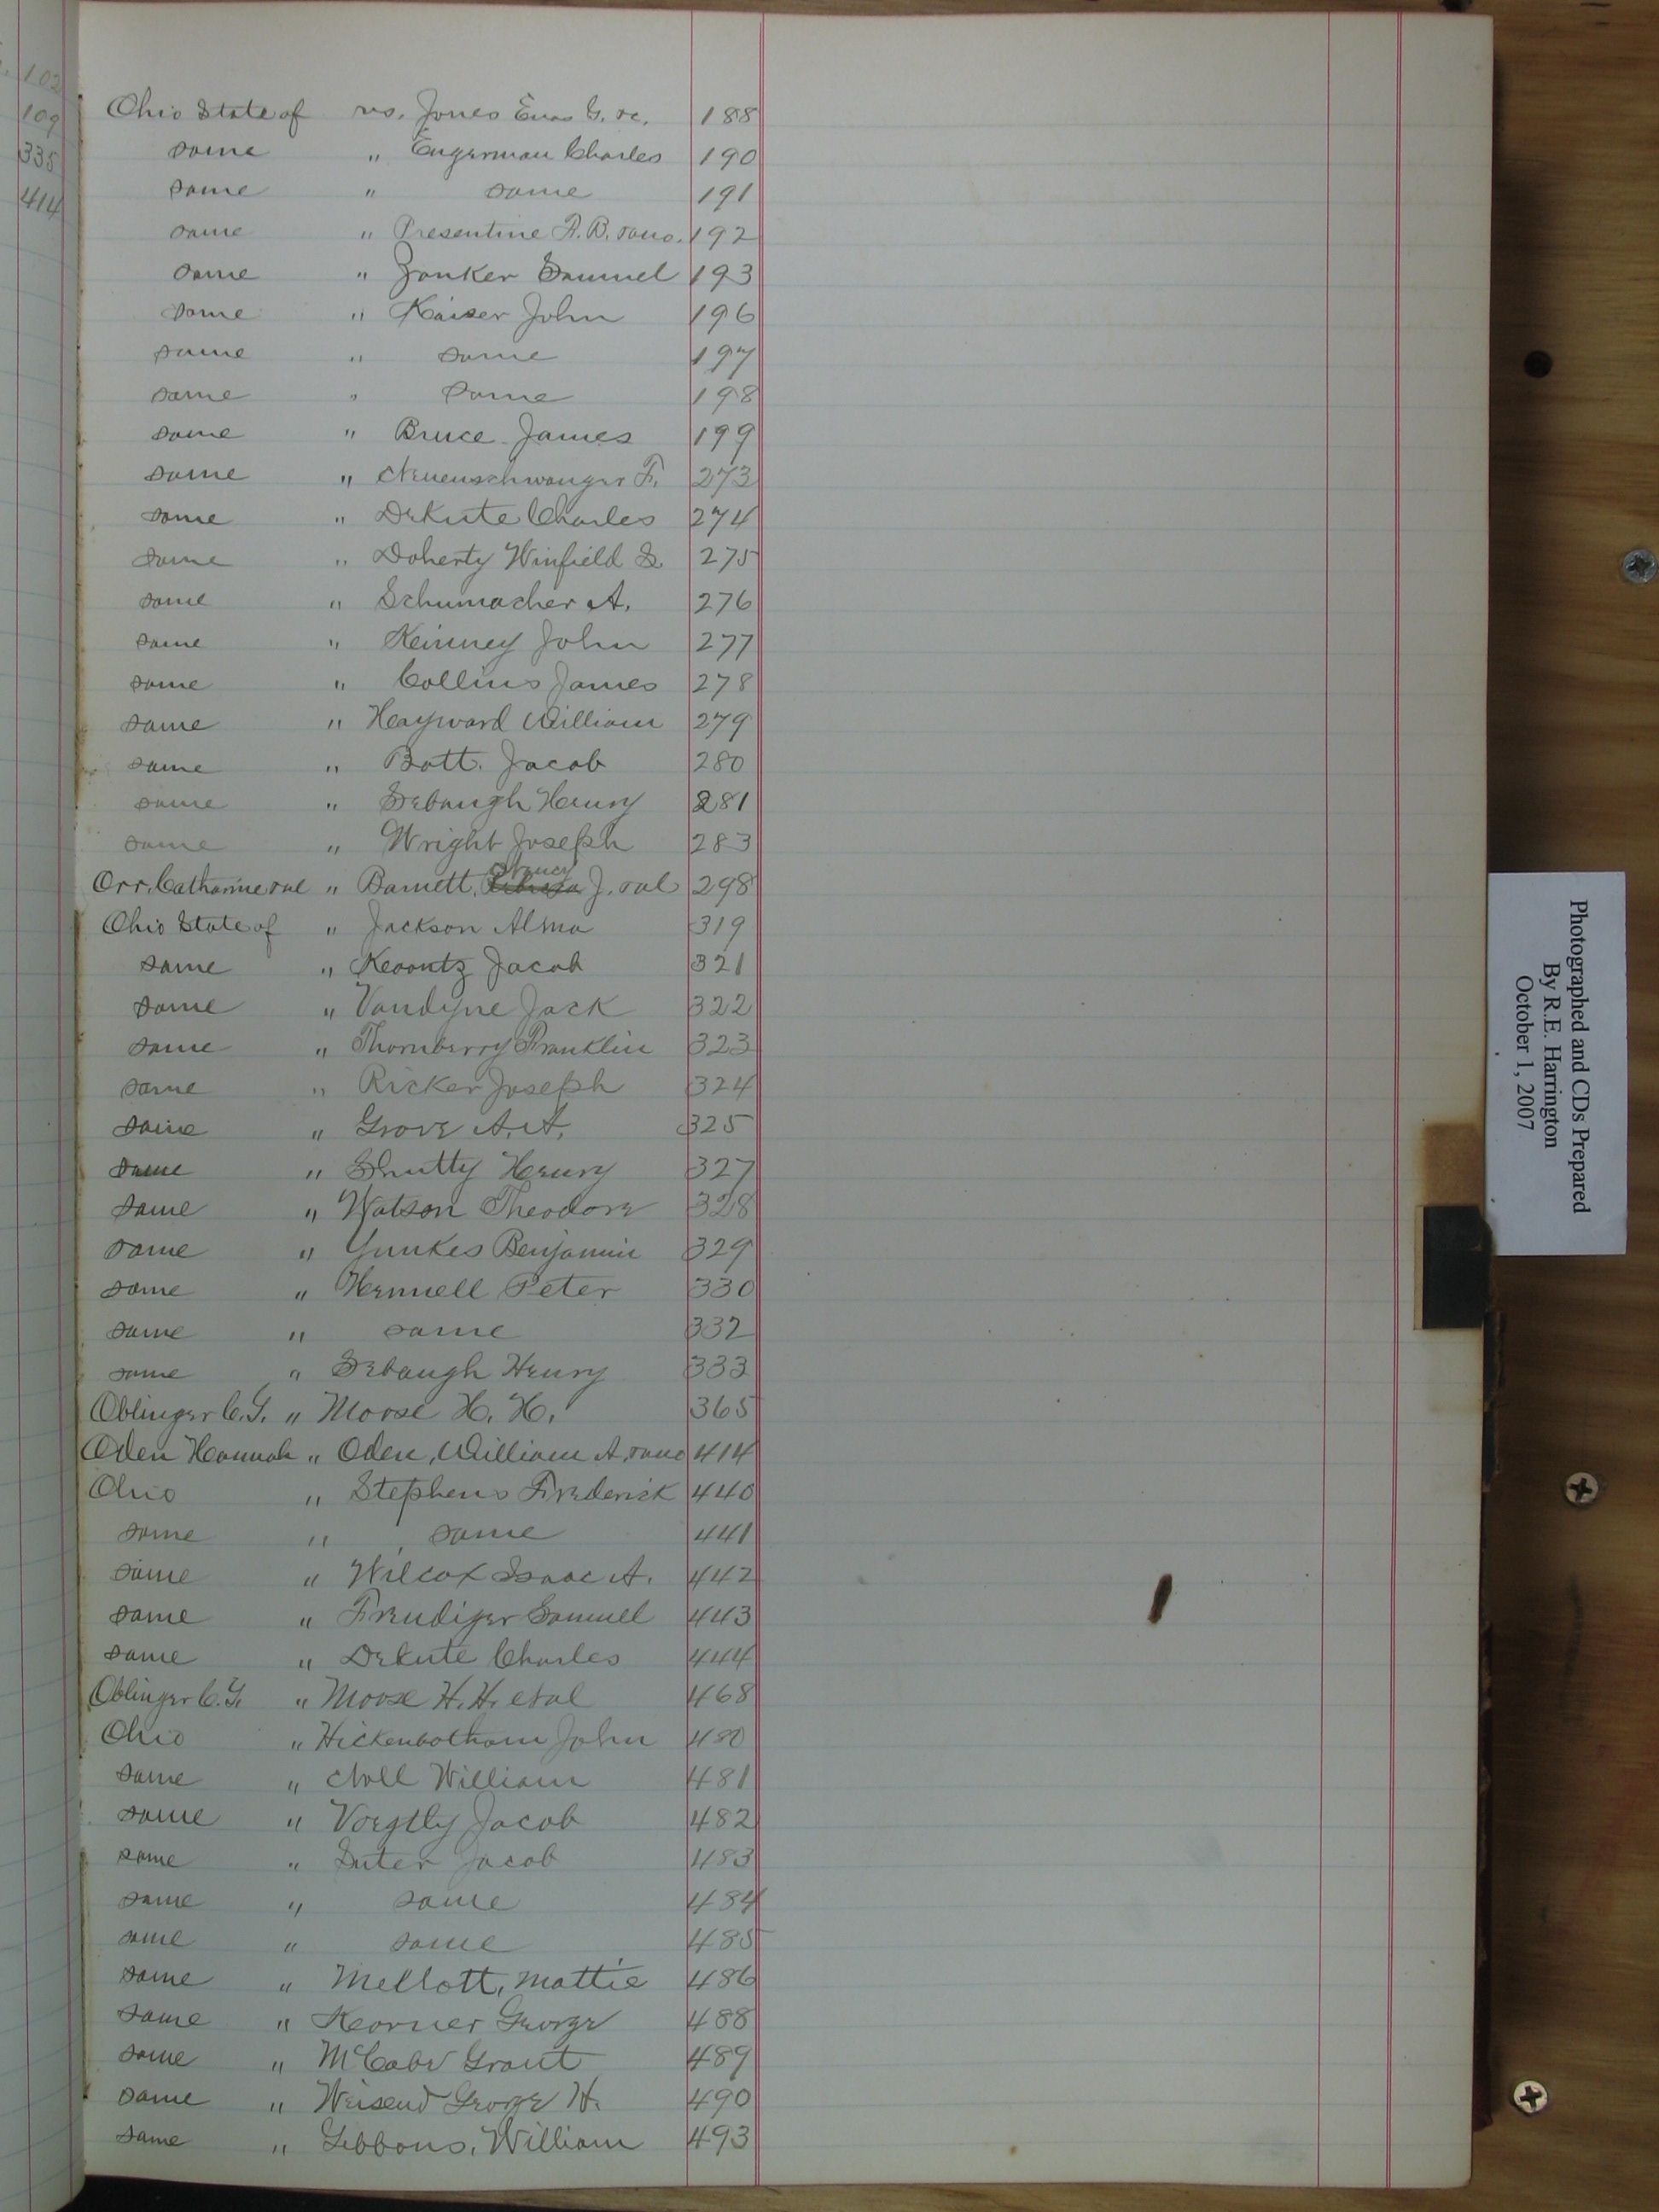 102
109
335
414
Ohio State of vs. Jones Enos G. &c. 188
same " Engerman Charles 190
same " same 191
same " Presentine A. B. 192
same " Janker Samuel 193
same " Kaiser John 196
same " same 197
same " same 198
same " Bruce James 199
same " Neuenschwanger F. 273
same " DeKute Charles 274
same " Doherty Winfield S. 275
same " Schumacher A. 276
same " Keinney John 277
same " Collins James 278
same " Hayward William 279
same " Bott. Jacob 280
same " Sebaugh Henry 281
same " Wright Joseph 283
Orr. Catharine et al " Barnett, Nancy J. et al 298
Ohio State of " Jackson Alma 319
same " Koontz Jacob 321
same " Vandyne Jack 322
same " Thornberry Franklin 323
same " Ricker Joseph 324
same " Grove A. A. 325
same " Shutty Henry 327
same " Watson Theodore 328
same " Yunkes Benjamin 329
same " Hennell Peter 330
same " same 332
same " Sebaugh Henry 333
Oblinger C. G. " Moose H. H. 365
Oden Hannah " Oden, William A. 414
Ohio " Stephens Frederick 440
same " same 441
same " Wilcox Isaac A. 442
same " Freudiger Samuel 443
same " DeKute Charles 444
Oblinger C. G. " Moose H. H. et al 468
Ohio " Hickenbotham John 480
same " Noll William 481
same " Voegtly Jacob 482
same " Suter Jacob 483
same " same 484
same " same 485
same " Mellott, Mattie 486
same " Korner George 488
same " McCabe Grant 489
same " Weisend George H. 490
same " Gibbons, William 493
Photographed and CDs Prepared
By R.E. Harrington
October 1, 2007